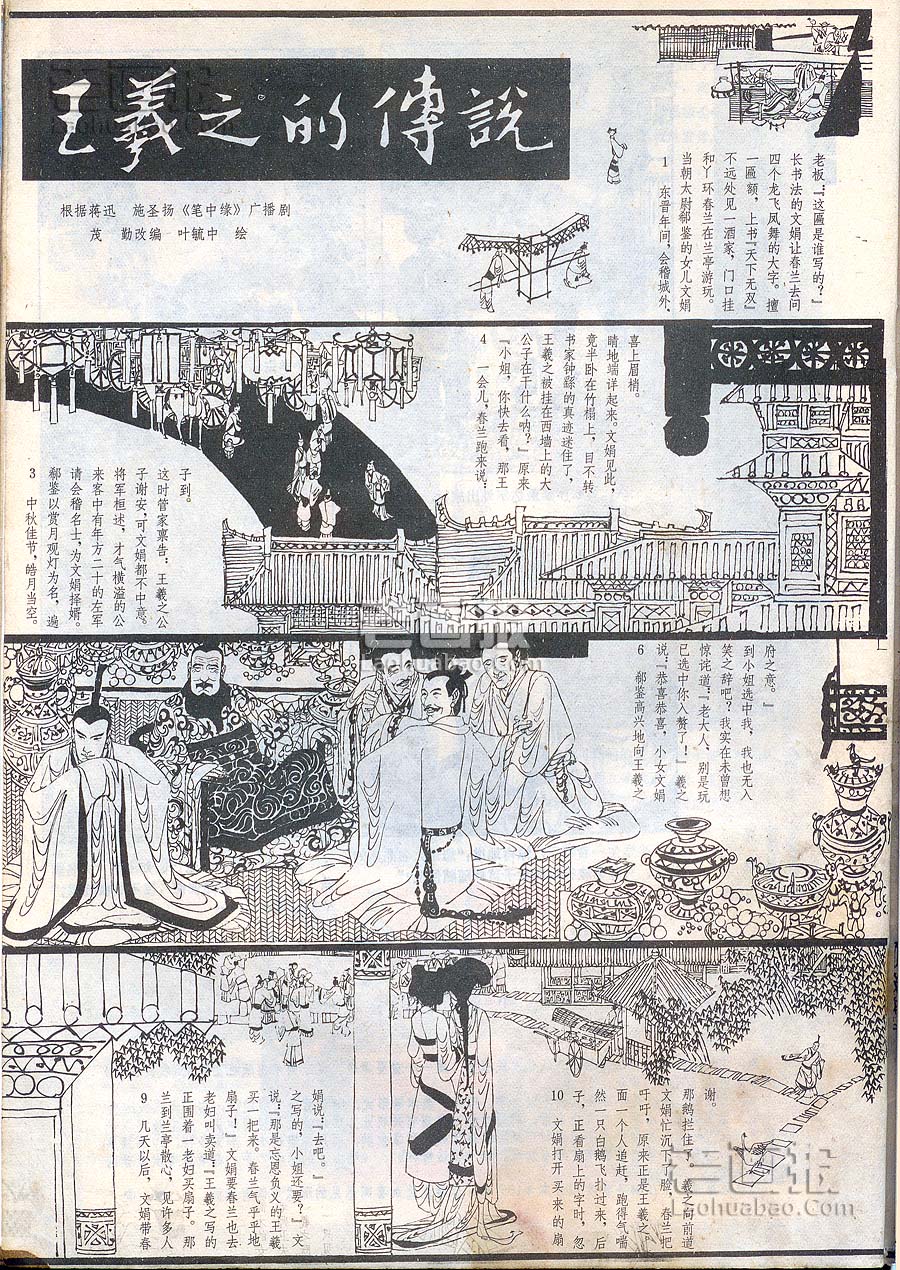 王羲之的傳說
根据蒋迅 施圣扬《笔中缘》广播剧
茂 勤改编 叶毓中 绘
1 东晋年间,会稽城外,
当朝太尉郗鉴的女儿文娟
和丫环春兰在兰亭游玩。
不远处见一酒家,门口挂
一匾额,上书“天下无双”
四个龙飞凤舞的大字。擅
长书法的文娟让春兰去问
老板:“这匾是谁写的?”
3 中秋佳节,皓月当空。
郗鉴以赏月观灯为名,遍
请会稽名士,为文娟择婿。
来客中有年方二十的左军
将军桓述、才气横溢的公
子谢安,可文娟都不中意。
这时管家禀告:王羲之公
子到。
4 一会儿,春兰跑来说:
“小姐,你快去看,那王
公子在干什么呐?”原来
王羲之被挂在西墙上的大
书家钟繇的真迹迷住了,
竟半卧在竹榻上,目不转
睛地端详起来。文娟见此,
喜上眉梢。
6 郗鉴高兴地向王羲之
说:“恭喜恭喜,小女文娟
已选中你入赘了!”羲之
惊诧道:“老大人,别是玩
笑之辞吧?我实在未曾想
到小姐选中我,我也无入
府之意。”
9 几天以后,文娟带春
兰到兰亭散心,见许多人
正围着一老妇买扇子。那
老妇叫卖道:“王羲之写的
扇子!”文娟要春兰也去
买一把来。春兰气乎乎地
说:“那是忘恩负义的王羲
之写的,小姐还要?”文
娟说:“去吧。”
10 文娟打开买来的扇
子,正看扇上的字时,忽
然一只白鹅飞扑过来,后
面一个人追赶,跑得气喘
吁吁,原来正是王羲之。
文娟忙沉下了脸,春兰把
那鹅拦住了,羲之向前道
谢。
老画报
Laohuabao.com
老画报
Laohuabao.Com